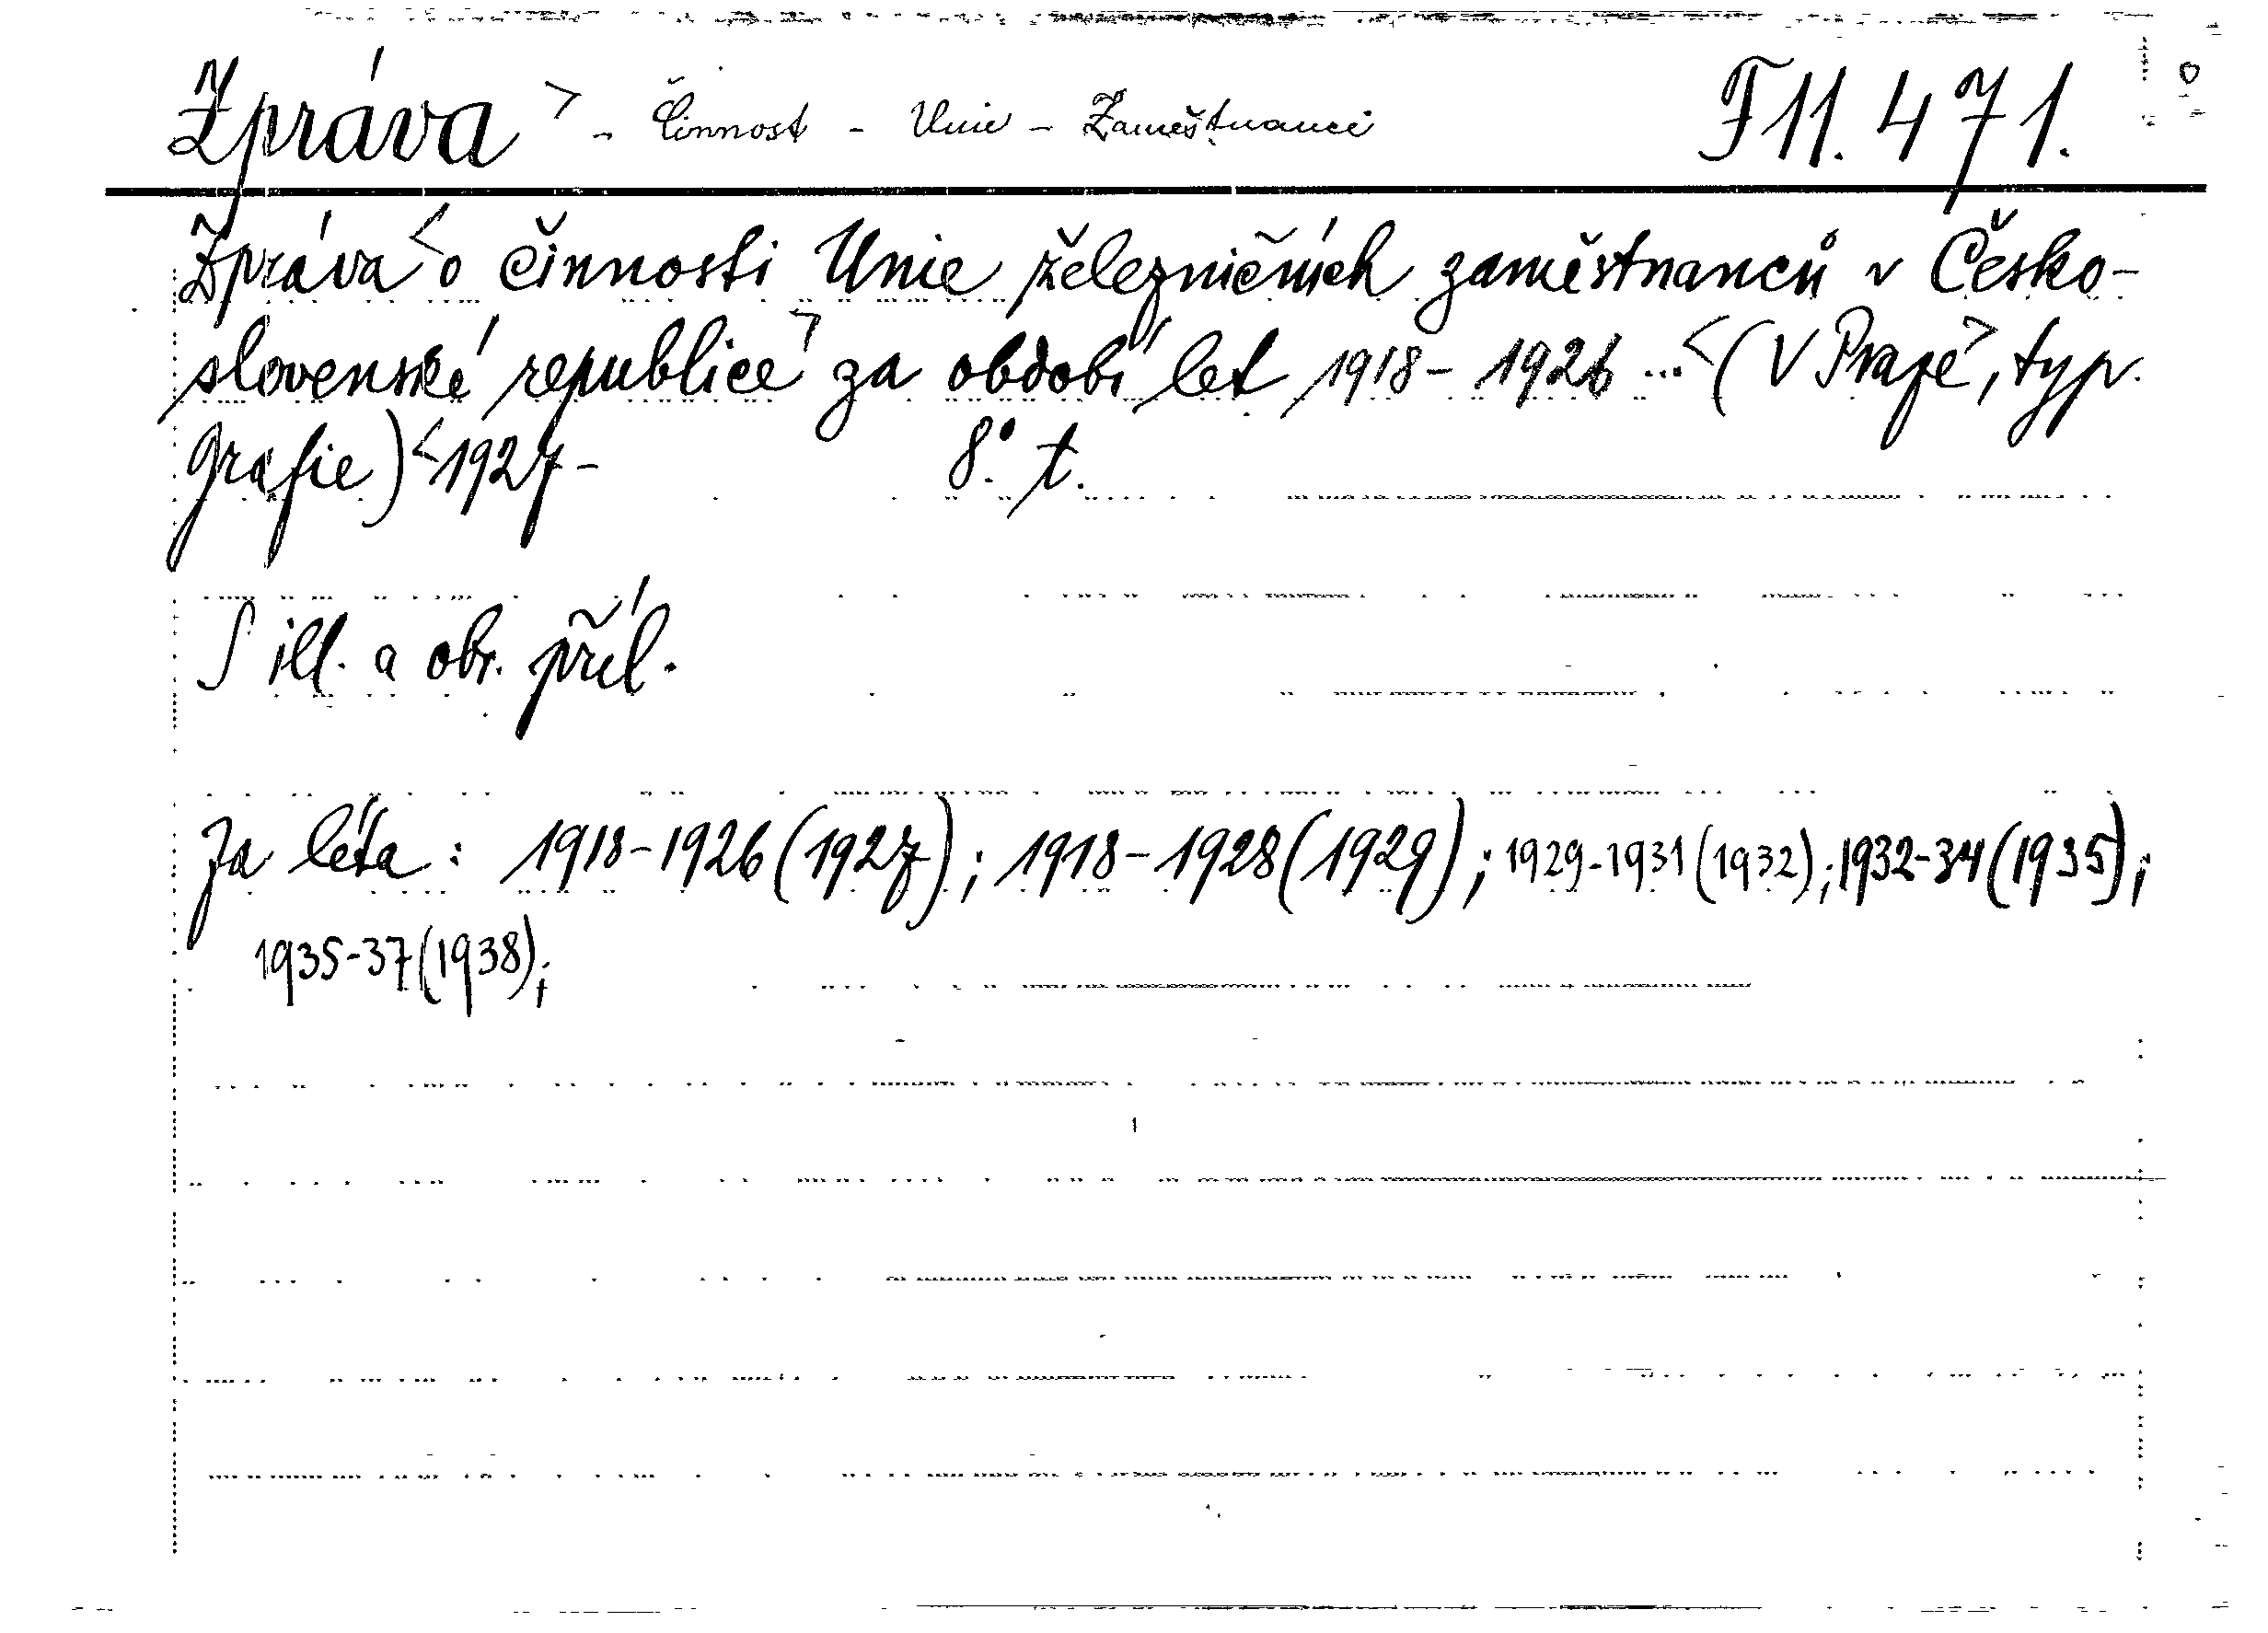 Zpráva > - Činnost - Unie - Zaměstnanci F 11.471.
Zpráva < o činnosti Unie železničních zaměstnanců v Česko-
slovenské republice > za období let 1918-1926 ... < (V Praze >, typ.
Grafie) < 1927- 8°. t.
S ill. a obr. příl.
Za léta: 1918-1926 (1927); 1918-1928 (1929); 1929-1931 (1932); 1932-34 (1935);
1935-37 (1938);